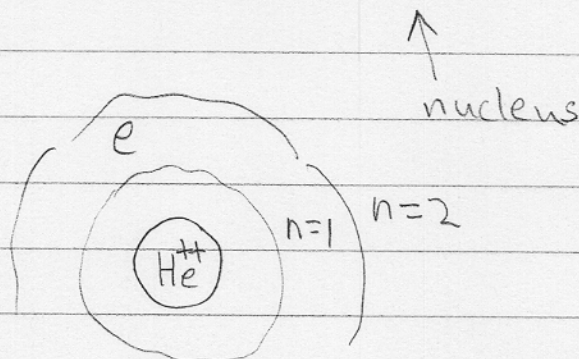 nucleus
e
n=1 n=2
He++